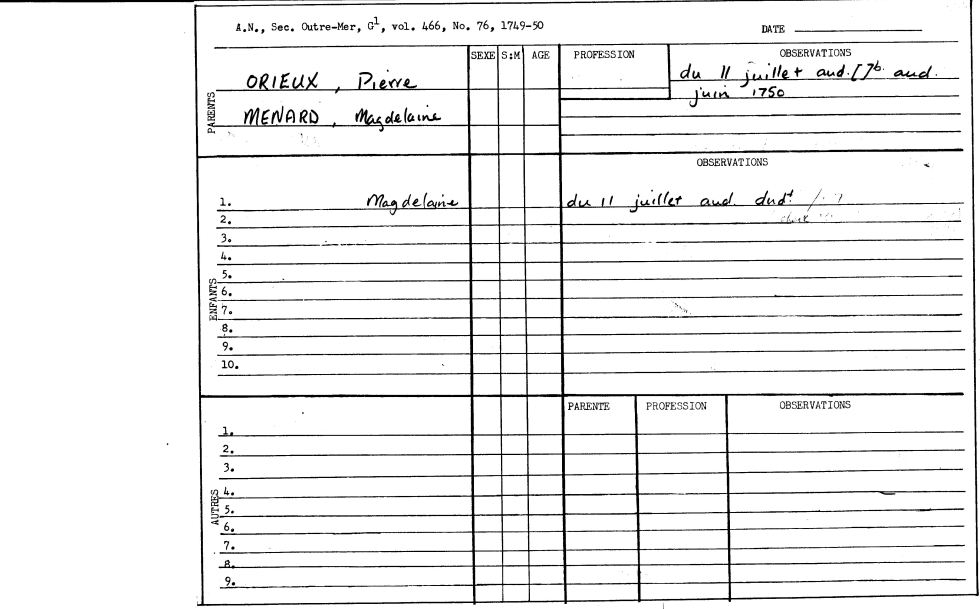 A.N., Sec. Outre-Mer, G1, vol. 466, No. 76, 1749-50
DATE
SEXE S:M AGE PROFESSION OBSERVATIONS
PARENTS
ORIEUX, Pierre
du 11 juillet aud. [7b. aud.
juin 1750
MENARD, Magdelaine
OBSERVATIONS
ENFANTS
1. Magdelaine du 11 juillet aud. dudt
2.
3.
4.
5.
6.
7.
8.
9.
10.
PARENTE PROFESSION OBSERVATIONS
AUTRES
1.
2.
3.
4.
5.
6.
7.
8.
9.